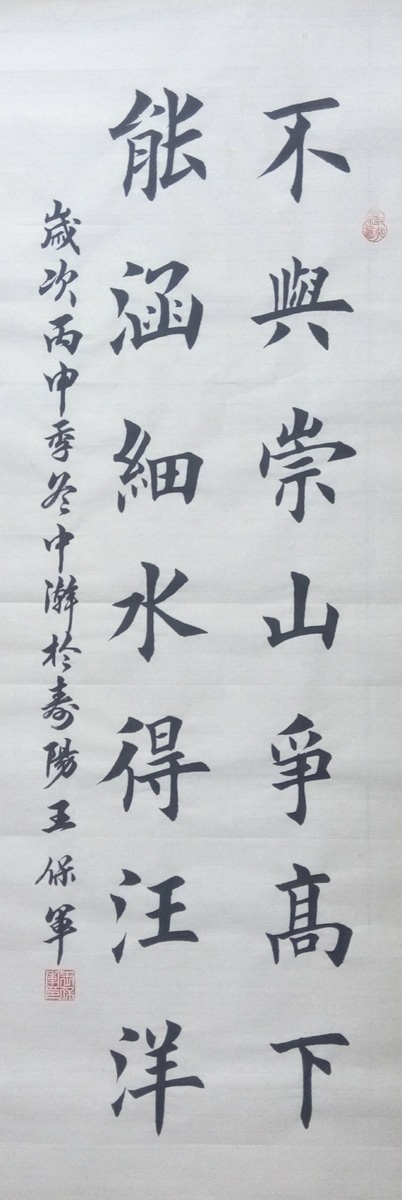 不與崇山爭髙下
能涵細水得汪洋
歳次丙申季冬中澣於壽陽王保軍